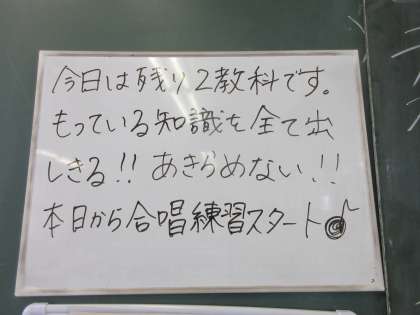 今日は残り2教科です。
もっている知識を全て出
しきる!! あきらめない!!
本日から合唱練習スタート♪